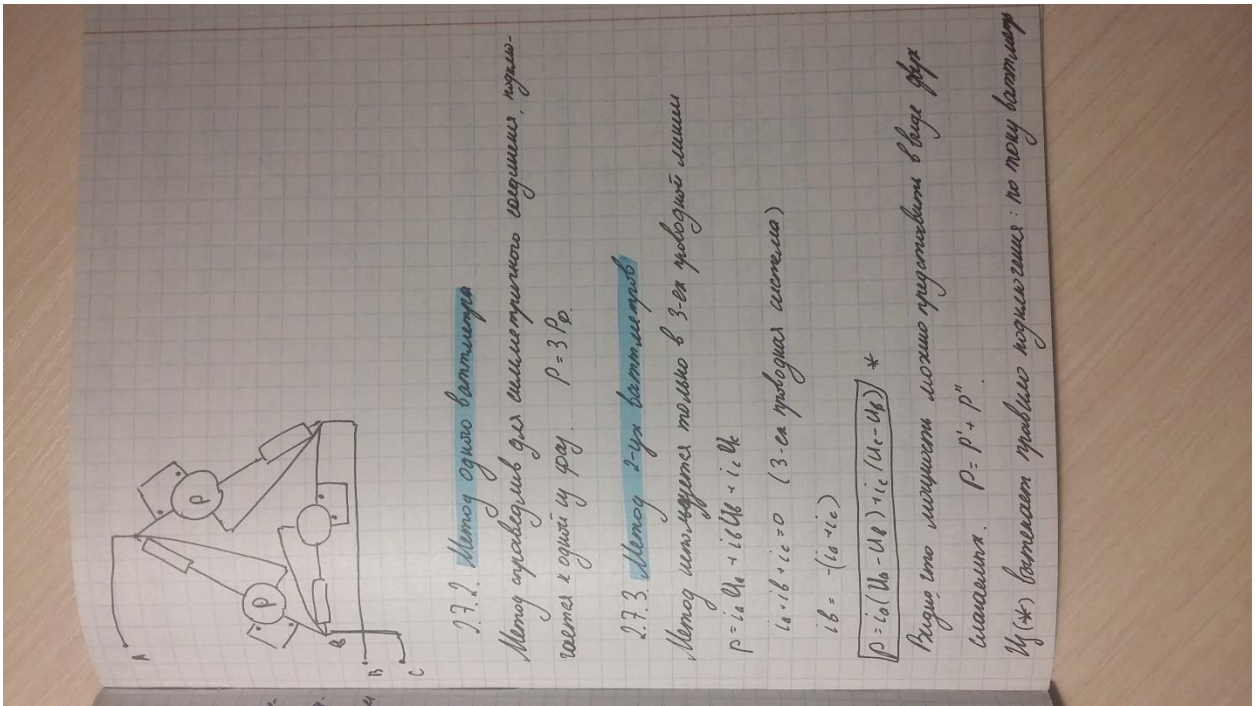 A
P
P
B
B
C
2.7.2. Метод одного ваттметра
Метод справедлив для симметричного соединения, подклю-
чается к одной из фаз. P = 3Pф
2.7.3. Метод 2-ух ваттметров
Метод используется только в 3-ех проводной линии
p = iaUa + ibUb + icUc
ia + ib + ic = 0 (3-ех проводная система)
ib = -(ia + ic)
p = ia(Ua - Ub) + ic(Uc - Ub) *
Видно, что мощность можно представить в виде двух
слагаемых. P = P' + P''.
Из (*) вытекает правило подключения: по току ваттметр